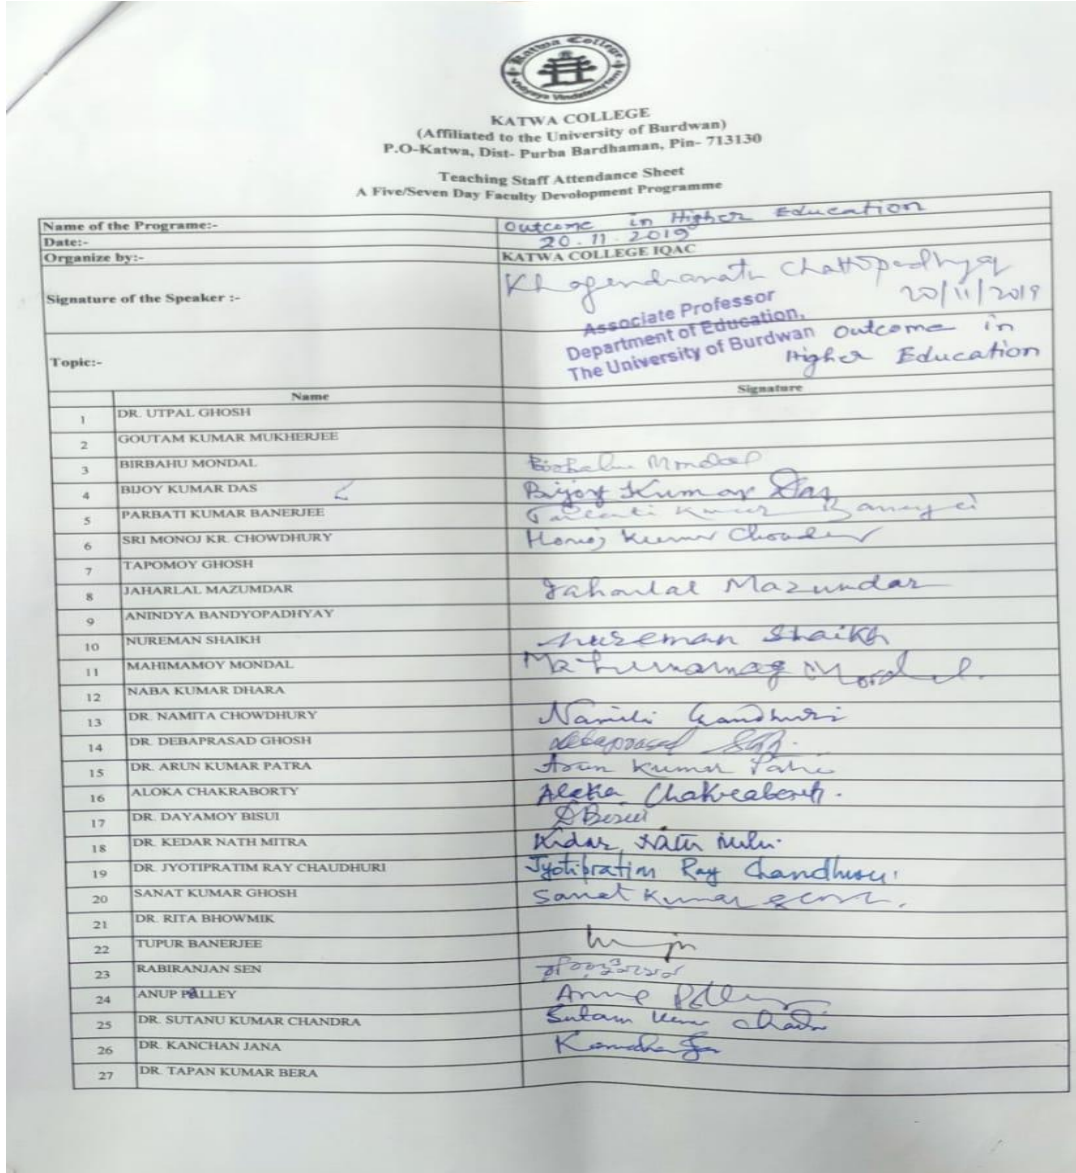 Katwa College
Vidyaya Vindatemritam
KATWA COLLEGE
(Affiliated to the University of Burdwan)
P.O-Katwa, Dist- Purba Bardhaman, Pin- 713130
Teaching Staff Attendance Sheet
A Five/Seven Day Faculty Devolopment Programme
Name of the Programe:- Outcome in Higher Education
Date:- 20.11.2019
Organize by:- KATWA COLLEGE IQAC
Signature of the Speaker :- Khagendranath Chattopadhyay
20/11/2019
Associate Professor
Department of Education,
The University of Burdwan
Topic:- Outcome in
Higher Education
Name Signature
1 DR. UTPAL GHOSH
2 GOUTAM KUMAR MUKHERJEE
3 BIRBAHU MONDAL Birbahu Mondal
4 BIJOY KUMAR DAS Bijoy Kumar Das
5 PARBATI KUMAR BANERJEE Parbati Kumar Banerjei
6 SRI MONOJ KR. CHOWDHURY Monoj Kumar Chowdhury
7 TAPOMOY GHOSH
8 JAHARLAL MAZUMDAR Jaharlal Mazumdar
9 ANINDYA BANDYOPADHYAY
10 NUREMAN SHAIKH Nureman Shaikh
11 MAHIMAMOY MONDAL Mahimamay Mondal.
12 NABA KUMAR DHARA
13 DR. NAMITA CHOWDHURY Namita Chowdhuri
14 DR. DEBAPRASAD GHOSH Debaprasad
15 DR. ARUN KUMAR PATRA Arun Kumar Patra
16 ALOKA CHAKRABORTY Aloka Chakraborty.
17 DR. DAYAMOY BISUI DBisui
18 DR. KEDAR NATH MITRA Kedar Nath Mitra.
19 DR. JYOTIPRATIM RAY CHAUDHURI Jyotipratim Ray Chaudhuri
20 SANAT KUMAR GHOSH Sanat Kumar Ghosh.
21 DR. RITA BHOWMIK
22 TUPUR BANERJEE
23 RABIRANJAN SEN
24 ANUP PALLEY Anup Palley
25 DR. SUTANU KUMAR CHANDRA Sutanu Kumar Chandra
26 DR. KANCHAN JANA Kanchan Jana
27 DR. TAPAN KUMAR BERA